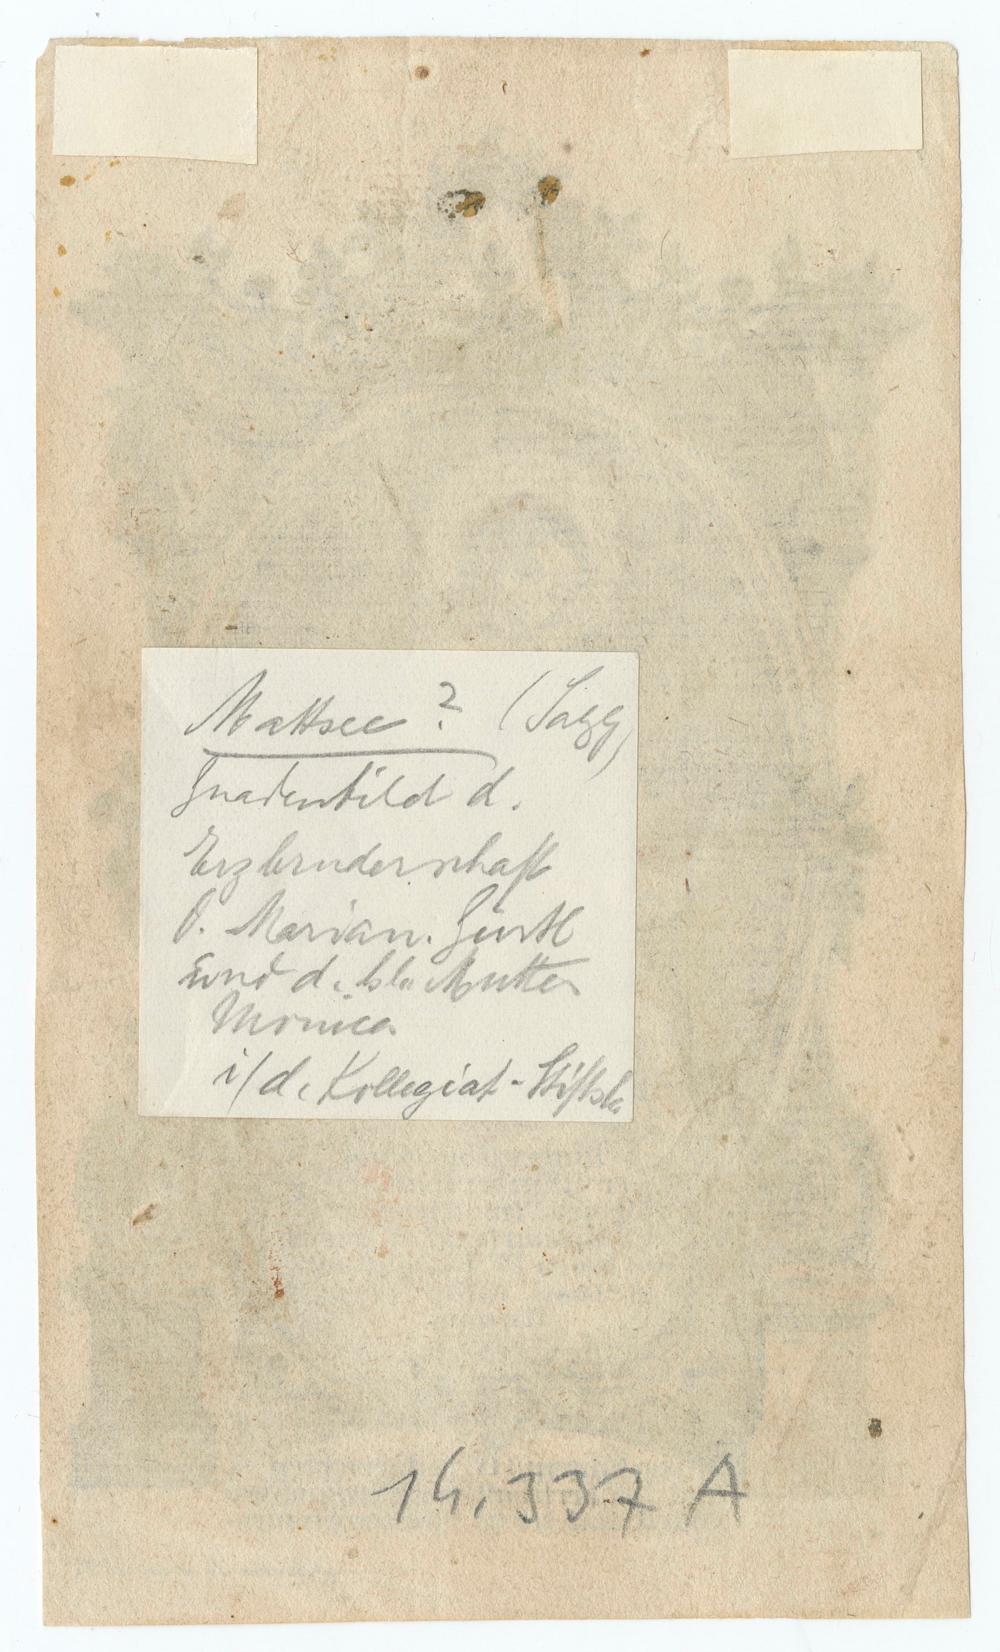 Mattsee ? (Salzg)
Gnadenbild d.
Erzbruderschaft
d. Marian. Gürtl
und d. hl. Mutter
Monica
i/d. Kollegiat-Stiftsk.
14.337 A